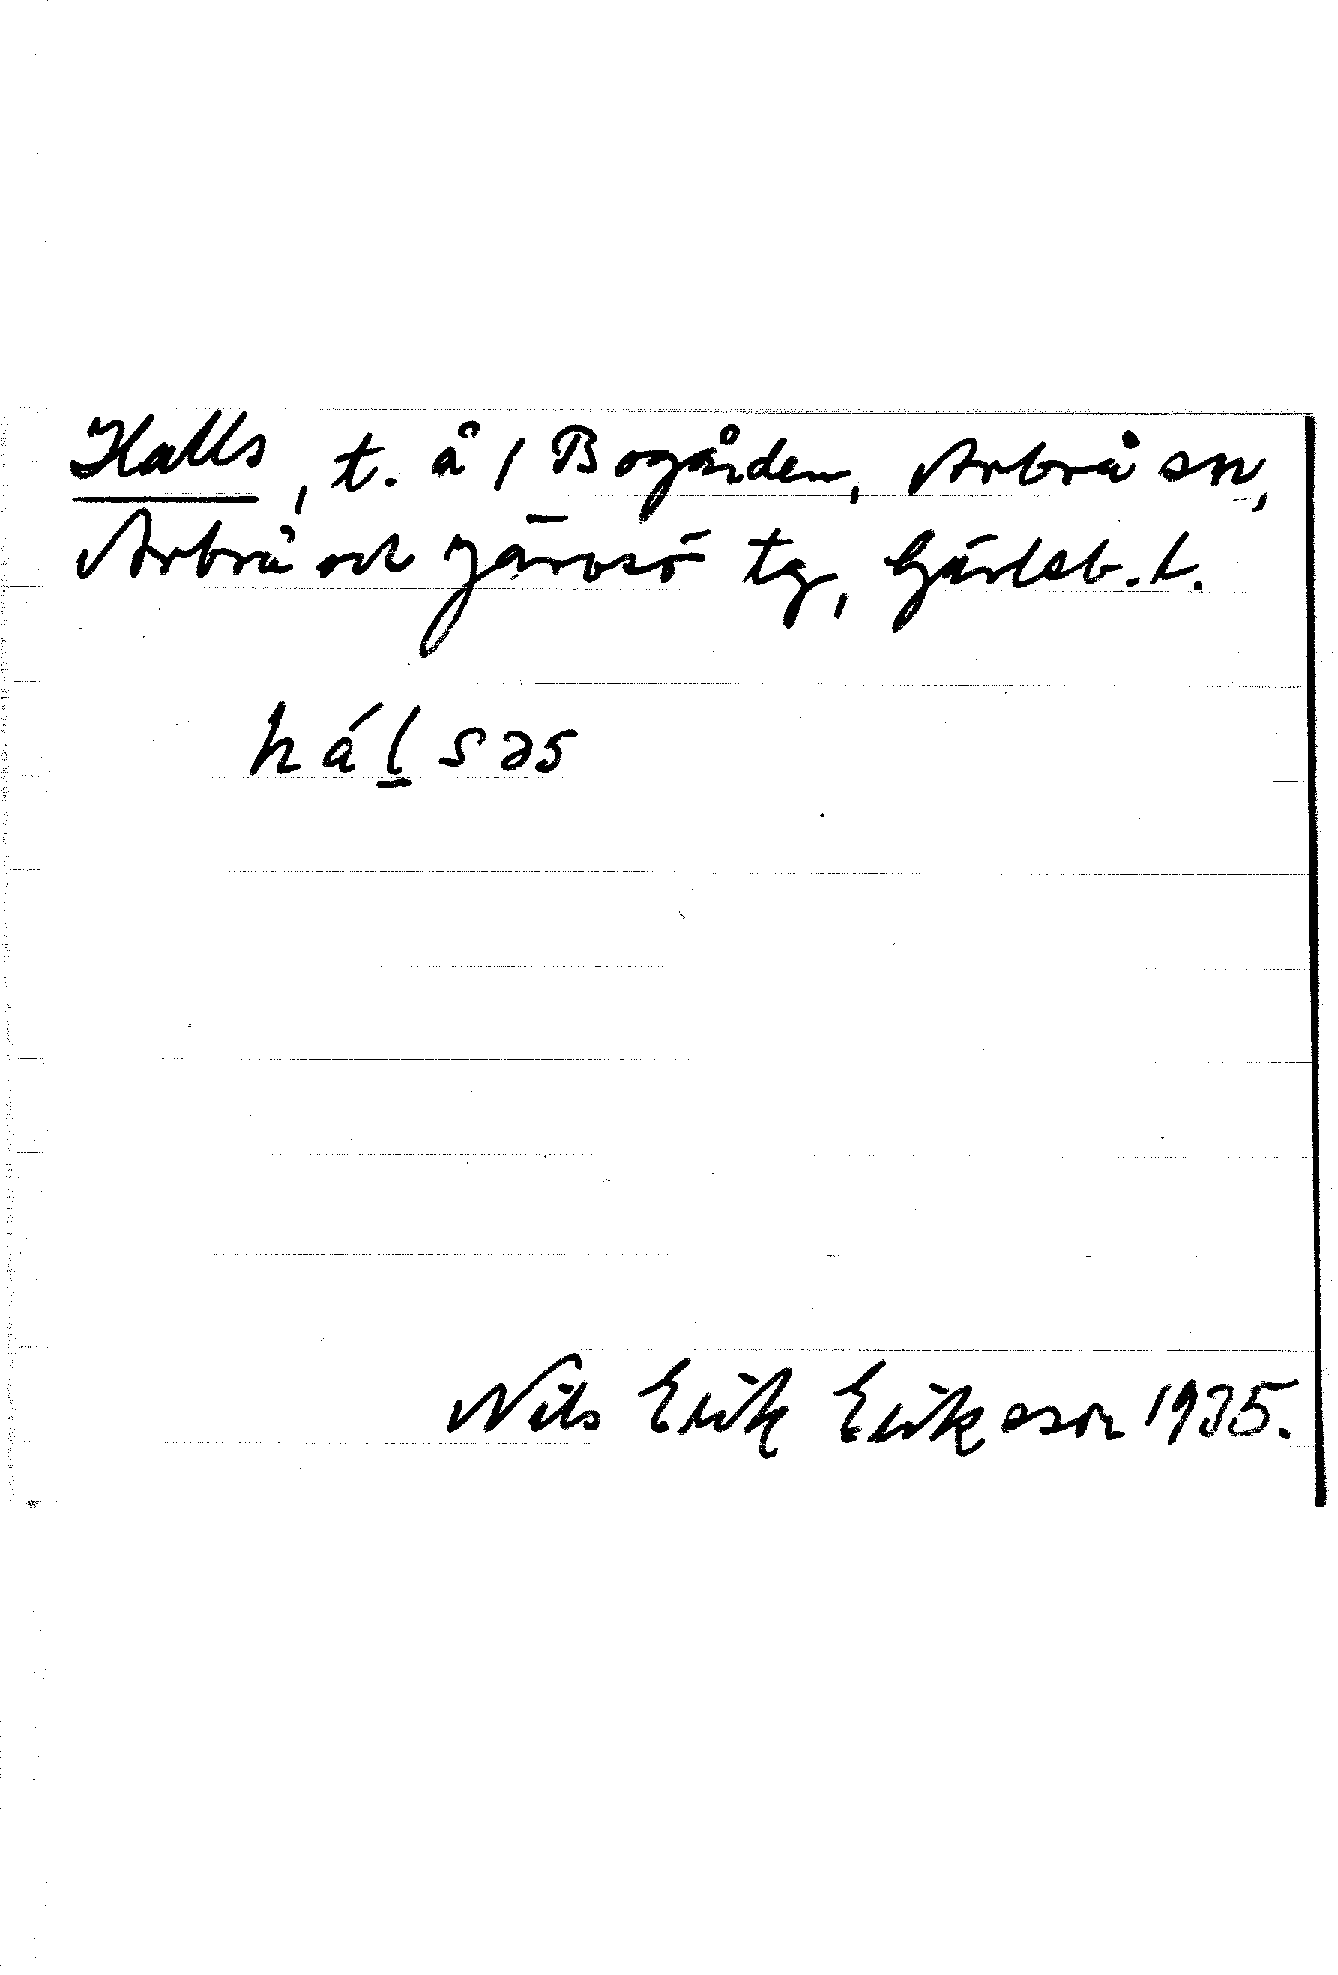 Halls, t. å 1 Bogården, Arbrå sn,
Arbrå och Järvsö tg, Gävleb. l.
hálsəs
Nils Erik Eriksson 1935.